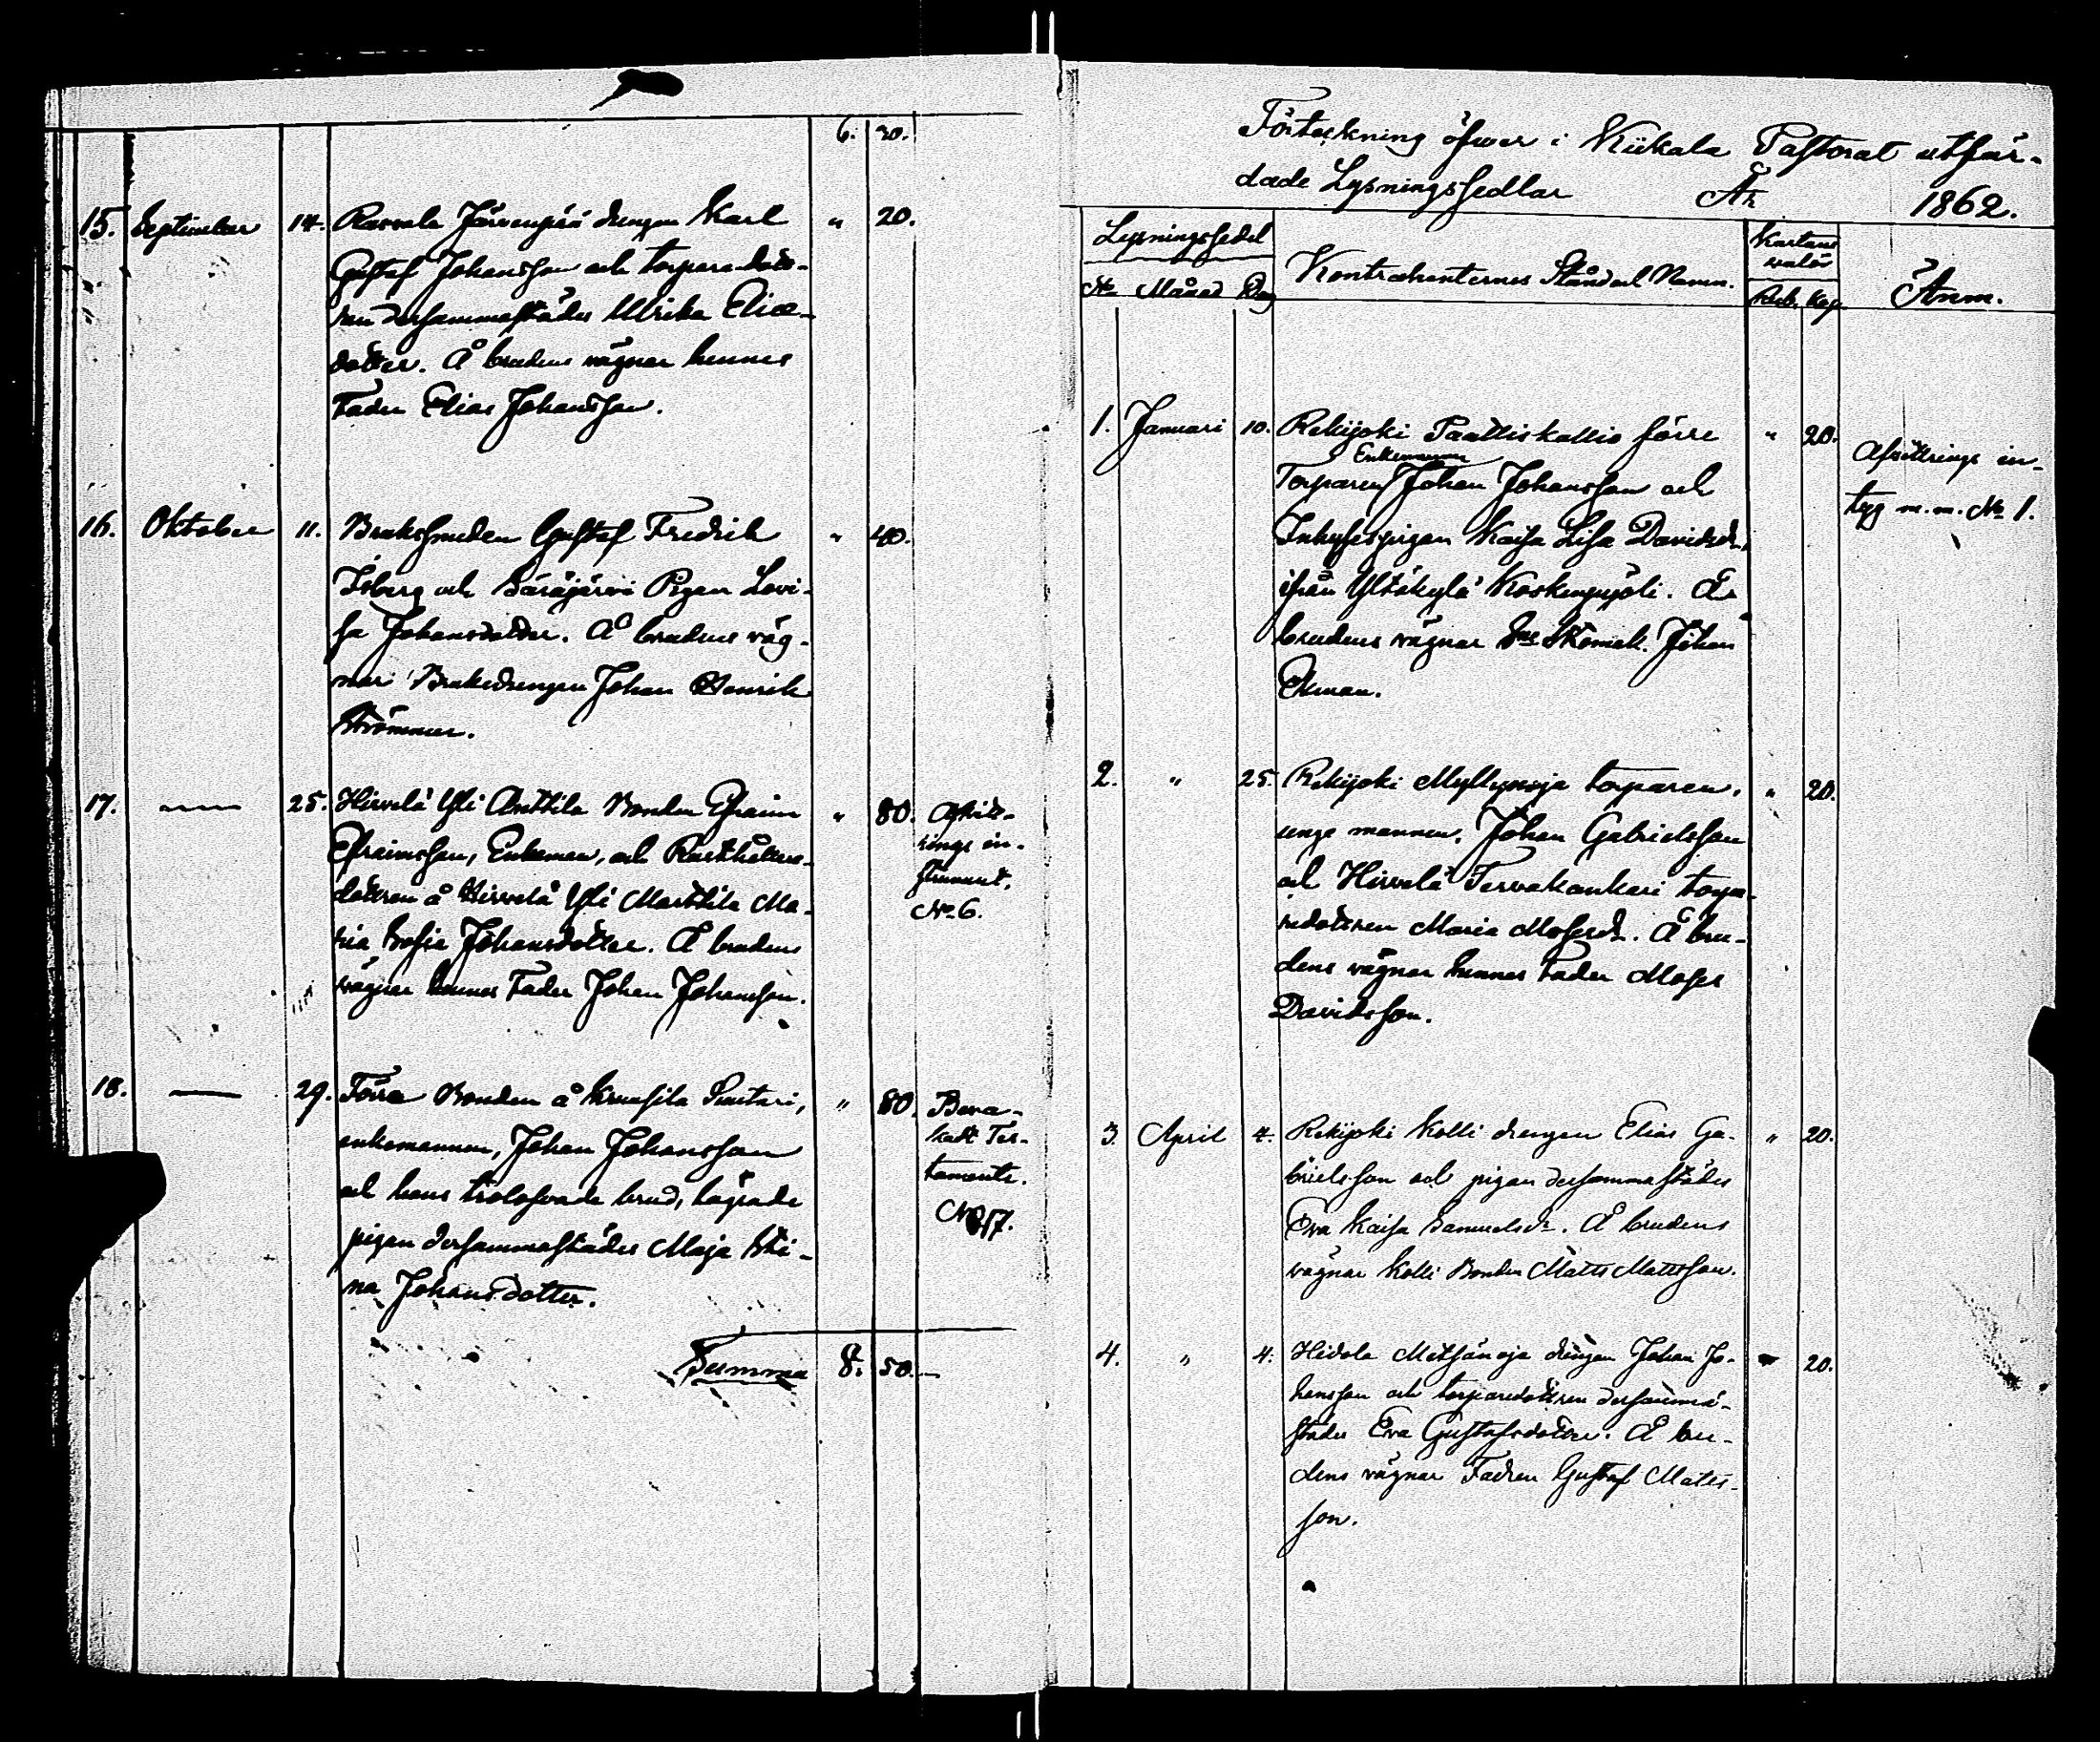 6. 30.
15. September 14. Rasvala Järvenpää drengen Karl " 20.
Gustaf Johansson och torparedott-
ren dersammastädes Ulrika Elias-
dotter. Å brudens vägnar hennes
Fader Elias Johansson.
16. Oktober 11. Bruksmeden Gustaf Fredrik " 40.
Isberg och Säräjärvi Pigan Lovi-
sa Johansdotter. Å brudens väg-
nar Bruksdrengen Johan Henrik
Strömmer.
17. — 25. Hirvelä Yli Anttila Bonden Efraim " 80. Afvitt-
Efraimsson, Enkeman, och Rusthållare- rings in-
dottren å Hirvelä Yli Marttila Ma- strument.
ria Sofia Johansdotter. Å brudens No 6.
vägnar hennes Fader Johan Johansson.
18. — 29. Förre Bonden å Kruusila Suutari, " 80. Beva-
enkemannen, Johan Johansson kadt Tes-
och hans trolofvade brud, lägrade tamente.
pigan dersammastädes Maja Sti- No 7.
na Johansdotter.
Summa 8. 50.
Förteckning öfwer i Kiikala Pastorat utfär-
dade Lysningssedlar År 1862.
Lysningssedel Kartans
valör
No Månad Dag Kontrahenternes Stånd och Namn. Rub. Kop. Anm.
1. Januari 10. Rekijoki Paattiskallio förre " 20. Afvittrings in-
Enkemannen
Torparen Johan Johansson och tyg m.m. No 1.
Inhysespigan Kaisa Lisa Davidsdr,
ifrån Yltäkylä Koskenpyöli. Å
brudens vägnar Skomak. Johan
Ekman.
2. " 25. Rekijoki Myllynoja torparen, " 20.
unge mannen, Johan Gabrielsson
och Hirvelä Tervakankari torpa-
redottren Maria Mosesdr. Å bru-
dens vägnar hennes Fader Moses
Davidsson.
3. April 4. Rekijoki Kolli drengen Elias Ga- " 20.
brielsson och pigan dersammastädes
Eva Kaisa Samuelsdr. Å brudens
vägnar Kolli Bonden Matts Mattsson.
4. " 4. Hidola Metsänoja drengen Johan Jo- " 20.
hansson och torparedottren dersamma-
städes Eva Gustafsdotter. Å bru-
dens vägnar Fadren Gustaf Matts-
son.